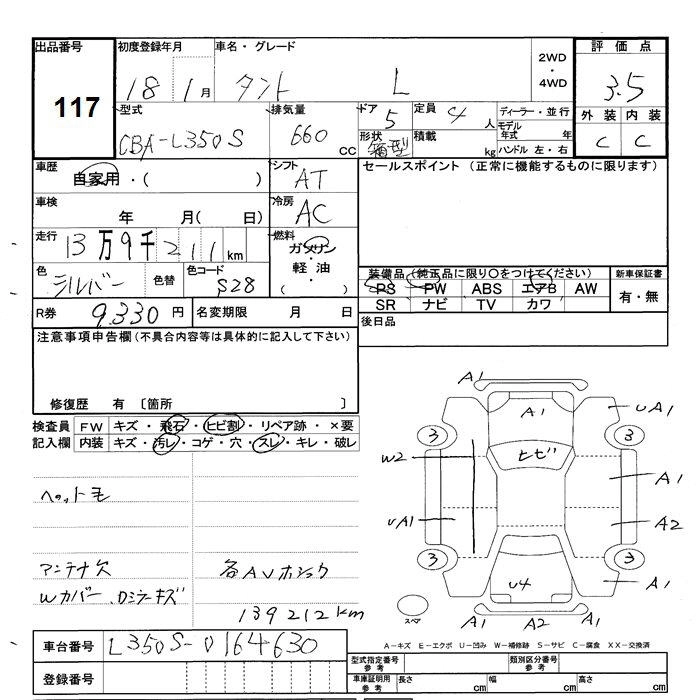 出品番号 初度登録年月 車名・グレード 2WD・4WD 評価点
117 18 1月 タント L 3.5
型式 排気量 ドア 5 定員 4人 ディーラー・並行 外装 内装
CBA-L350S 660cc 形状 箱型 積載 kg モデル年式 年 ハンドル 左・右 C C
車歴 自家用・( ) シフト AT セールスポイント (正常に機能するものに限ります)
車検 年 月( 日) 冷房 AC
走行 13万9千211km 燃料 ガソリン・軽油・( )
色 シルバー 色替 色コード S28 装備品(純正品に限り○をつけてください) 新車保証書
PS PW ABS エアB AW 有・無
R券 9,330円 名変期限 月 日 SR ナビ TV カワ
注意事項申告欄(不具合内容等は具体的に記入して下さい) 後日品
修復歴 有 〔箇所 〕
検査員 FW キズ・飛石・ヒビ割・リペア跡・×要
記入欄 内装 キズ・汚レ・コゲ・穴・スレ・キレ・破レ
A1
A1 UA1
3 3
W2 ヒビ A1
ヘット毛
UA1 A2
アンテナ欠 各AVホショク 3 3
U4 A1
Wカバー、Dミラーキズ
139212km
スペア A1 A2 A1
A-キズ E-エクボ U-凹み W-補修跡 S-サビ C-腐食 XX-交換済
車台番号 L350S-0164630
型式指定番号 参考 類別区分番号 参考
登録番号 車庫証明用 参考 長さ cm 幅 cm 高さ cm